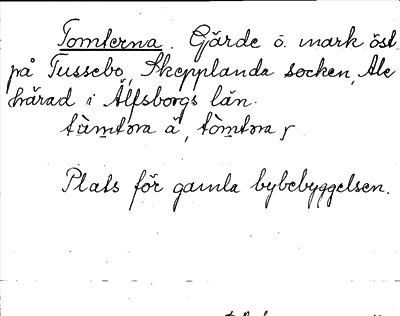 Tomterna. Gärde o. mark öst
på Tussebo, Skepplanda socken, Ale
härad i Älfsborgs län.
Plats för gamla bybebyggelsen.